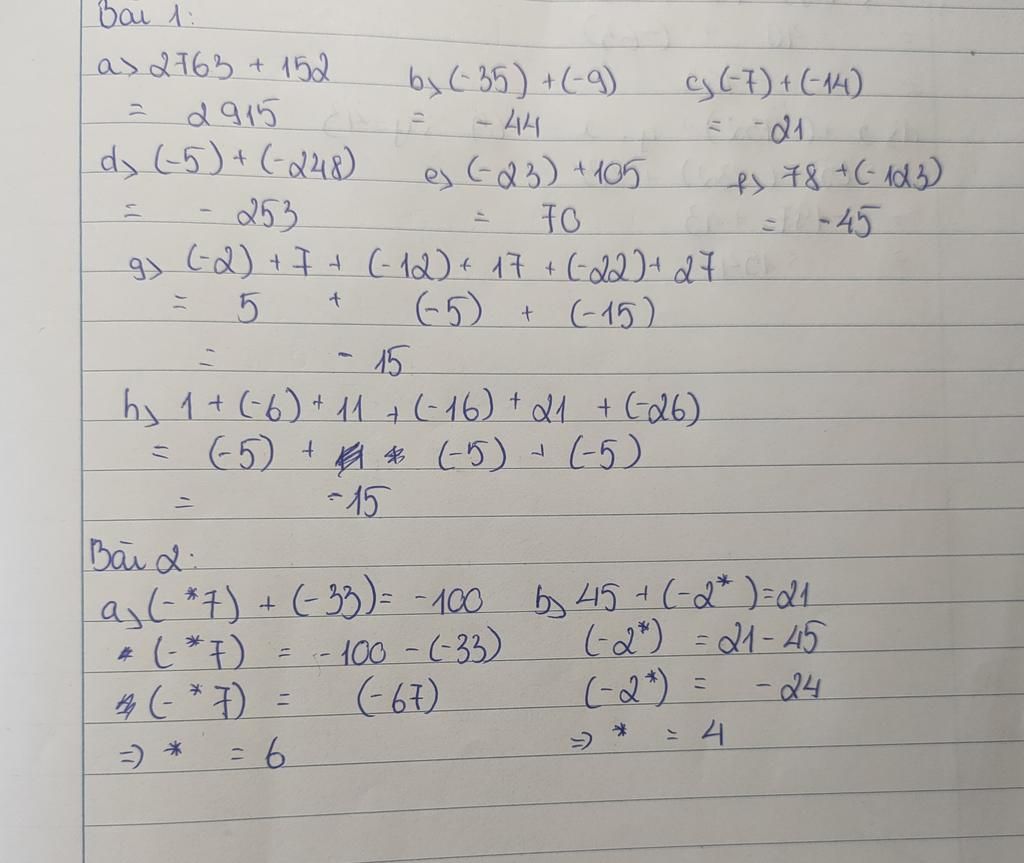 Bài 1:
a> 2763 + 152 b> (-35) + (-9) c> (-7) + (-14)
= 2915 = - 44 = -21
d> (-5) + (-248) e> (-23) + 105 f> 78 + (-123)
= - 253 = 70 = -45
g> (-2) + 7 + (-12) + 17 + (-22) + 27
= 5 + (-5) + (-15)
= - 15
h> 1 + (-6) + 11 + (-16) + 21 + (-26)
= (-5) + (-5) + (-5)
= -15
Bài 2:
a> (-*7) + (-33) = -100 b> 45 + (-2*) = 21
(-*7) = -100 - (-33) (-2*) = 21 - 45
(-*7) = (-67) (-2*) = -24
=> * = 6 => * = 4